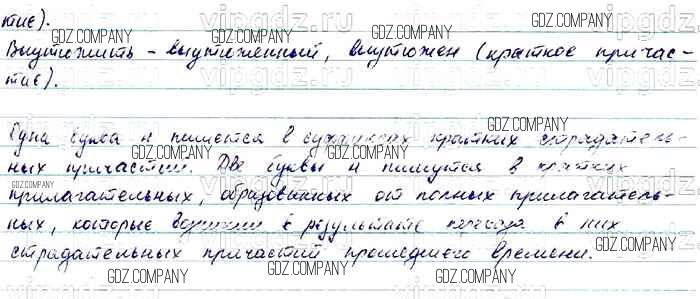 тие).
Выутюжить – выутюженный, выутюжен (краткое причас-
тие).
Одна буква н пишется в суффиксах кратких страдатель-
ных причастий. Две буквы н пишутся в кратких
прилагательных, образованных от полных прилагатель-
ных, которые в результате перехода в них
страдательных причастий прошедшего времени.
GDZ.COMPANY
vipgdz.ru